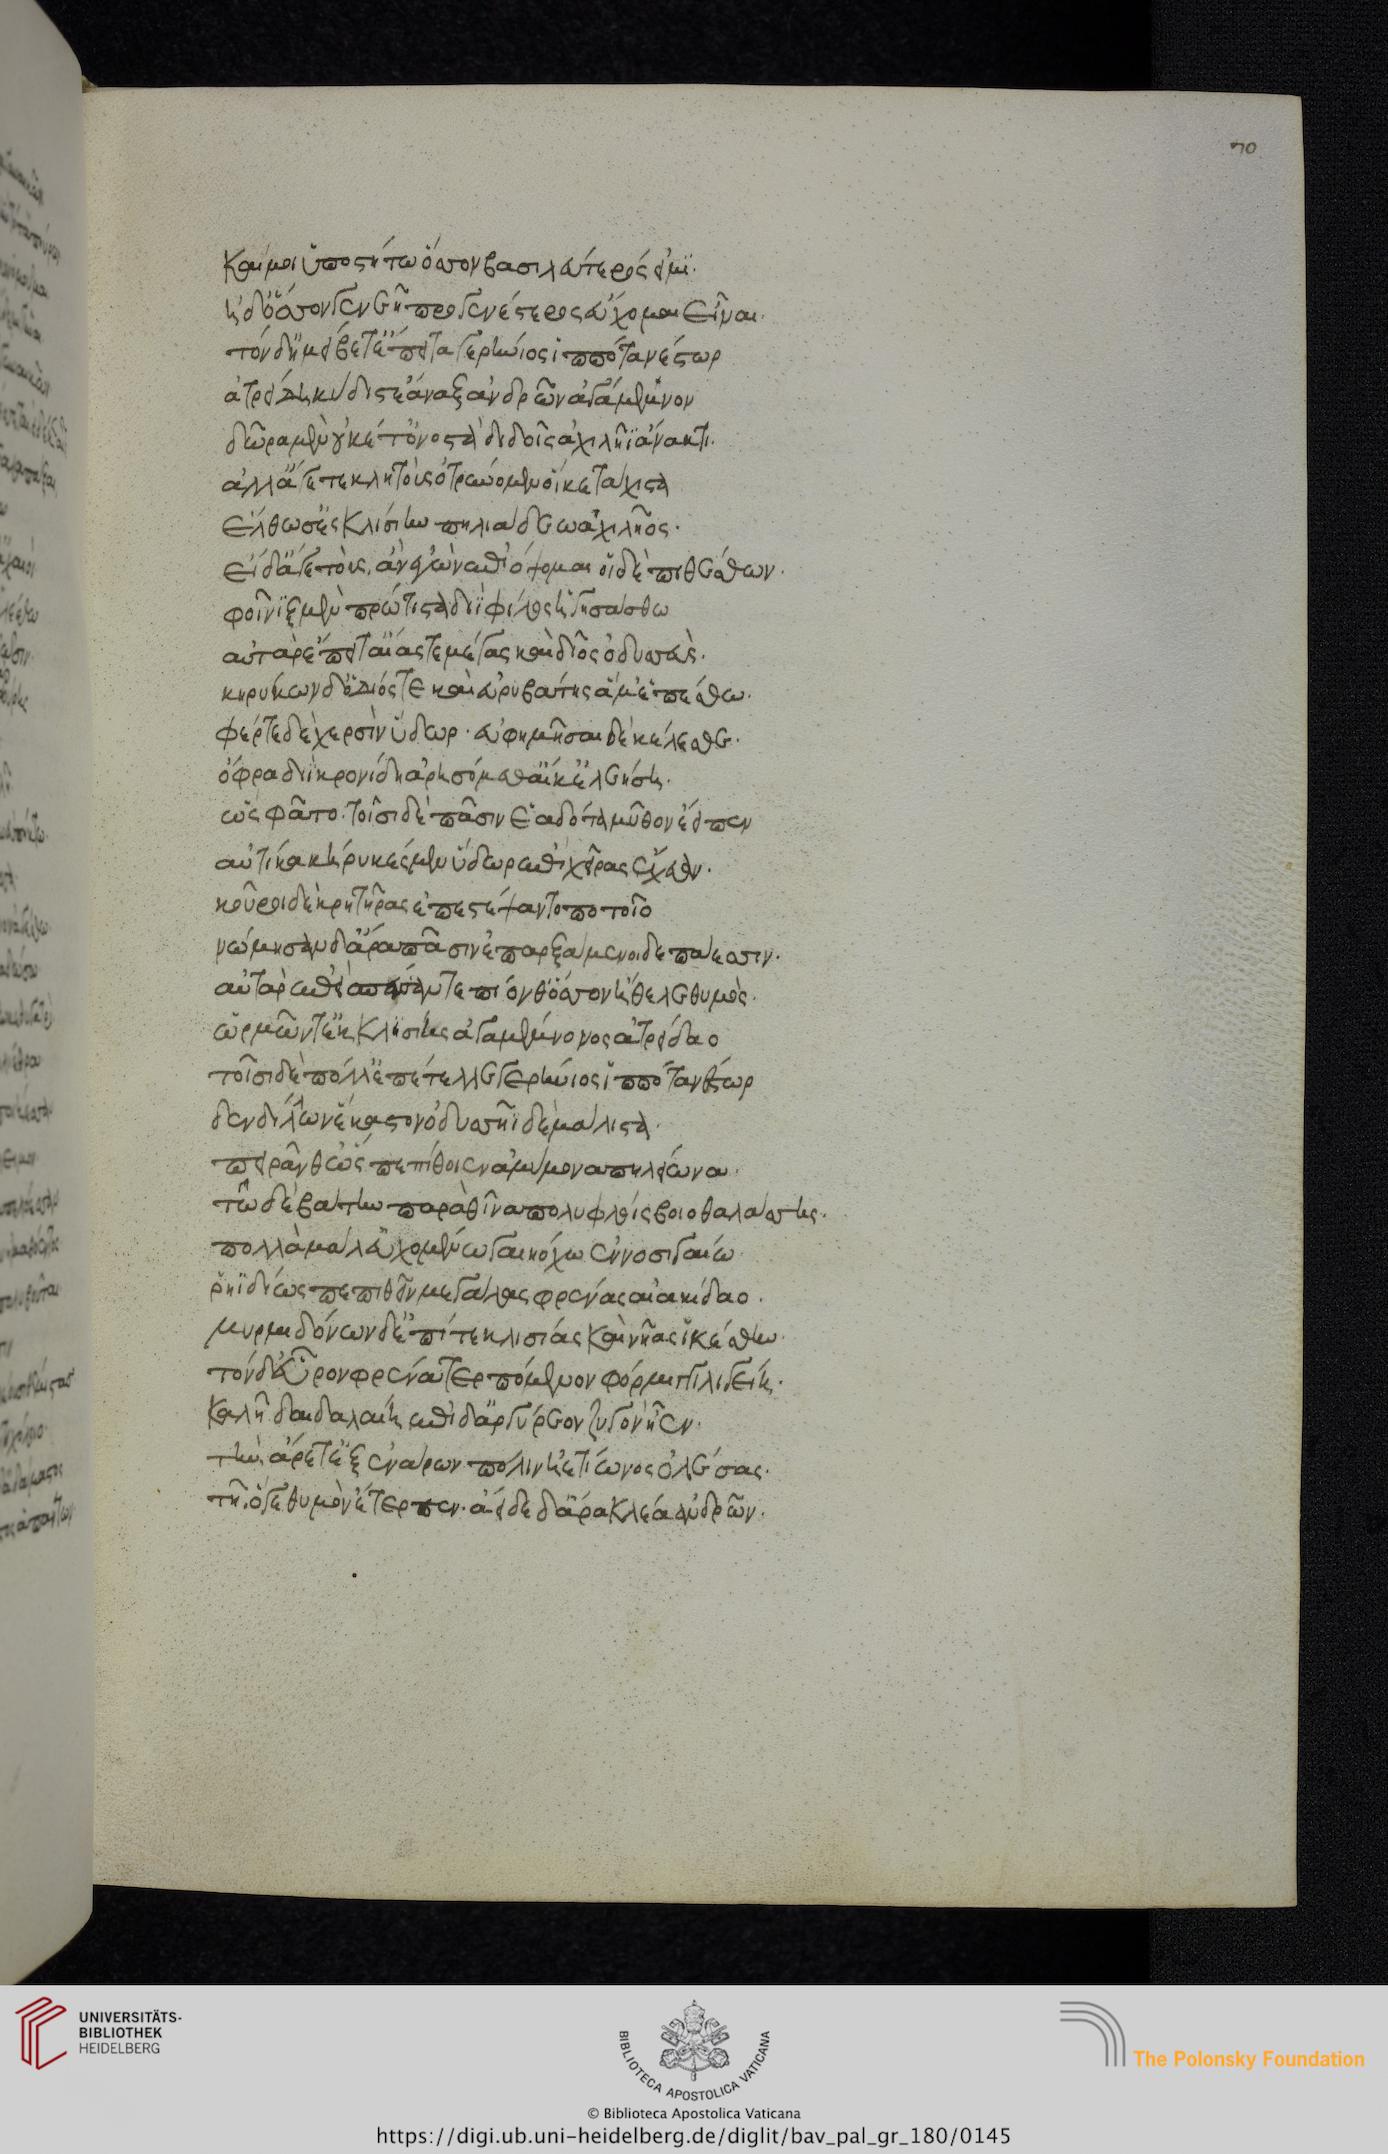 70
Καί μοι ὑποστήτω ὅσσον βασιλεύτερός εἰμι.
ἠδ' ὅσσον γενεῇ προγενέστερος εὔχομαι εἶναι.
τὸν δ' ἠμείβετ' ἔπειτα γερήνιος ἱππότα νέστωρ
ἀτρείδη κύδιστε ἄναξ ἀνδρῶν ἀγάμεμνον
δῶρα μὲν οὐκέτ' ὀνοστὰ διδοῖς ἀχιλῆϊ ἄνακτι.
ἀλλ' ἄγετε κλητοὺς ὀτρύνομεν οἵ κε τάχιστα
ἔλθωσ' ἐς κλισίην πηληιάδεω ἀχιλῆος.
εἰ δ' ἄγε τοὺς ἂν ἐγὼν ἐπιόψομαι οἱ δὲ πιθέσθων.
φοῖνιξ μὲν πρώτιστα διῒ φίλος ἡγησάσθω
αὐτὰρ ἔπειτ' αἴας τε μέγας καὶ δῖος ὀδυσσεύς.
κηρύκων δ' ὀδίος τε καὶ εὐρυβάτης ἅμ' ἑπέσθων.
φέρτε δὲ χερσὶν ὕδωρ. εὐφημῆσαι δὲ κέλεσθε.
ὄφρα διῒ κρονίδη ἀρησόμεθ' αἴ κ' ἐλεήσῃ.
ὣς φάτο. τοῖσι δὲ πᾶσιν ἑαδότα μῦθον ἔειπεν
αὐτίκα κήρυκες μὲν ὕδωρ ἐπὶ χεῖρας ἔχευαν.
κοῦροι δὲ κρητῆρας ἐπεστέψαντο ποτοῖο
νώμησαν δ' ἄρα πᾶσιν ἐπαρξάμενοι δεπάεσσιν.
αὐτὰρ ἐπεὶ σπεῖσάν τε πιόν θ' ὅσσον ἤθελε θυμὸς.
ὡρμῶντ' ἐκ κλισίης ἀγαμέμνονος ἀτρείδαο
τοῖσι δὲ πόλλ' ἐπέτελλε γερήνιος ἱππότα νέστωρ
δενδίλλων ἕκαστον ὀδυσσῆϊ δὲ μάλιστα.
πειρᾶν θ' ὡς πεπίθοιεν ἀμύμονα πηλείωνα.
τὼ δὲ βάτην παρὰ θῖνα πολυφλοίσβοιο θαλάσσης.
πολλὰ μάλ' εὐχομένω γαιηόχω ἐννοσιγαίω
ῥηϊδίως πεπιθεῖν μεγάλας φρένας αἰακίδαο.
μυρμιδόνων δ' ἐπί τε κλισίας καὶ νῆας ἱκέσθην.
τὸν δ' εὗρον φρένα τερπόμενον φόρμιγγι λιγείῃ.
καλῇ δαιδαλέῃ ἐπὶ δ' ἀργύρεον ζυγὸν ἦεν.
τὴν ἄρετ' ἐξ ἐνάρων πόλιν ἠετίωνος ὀλέσας.
τῇ ὅγε θυμὸν ἔτερπεν. ἄειδε δ' ἄρα κλέα ἀνδρῶν.
UNIVERSITÄTS-
BIBLIOTHEK
HEIDELBERG
BIBLIOTECA APOSTOLICA VATICANA
The Polonsky Foundation
© Biblioteca Apostolica Vaticana
https://digi.ub.uni-heidelberg.de/diglit/bav_pal_gr_180/0145